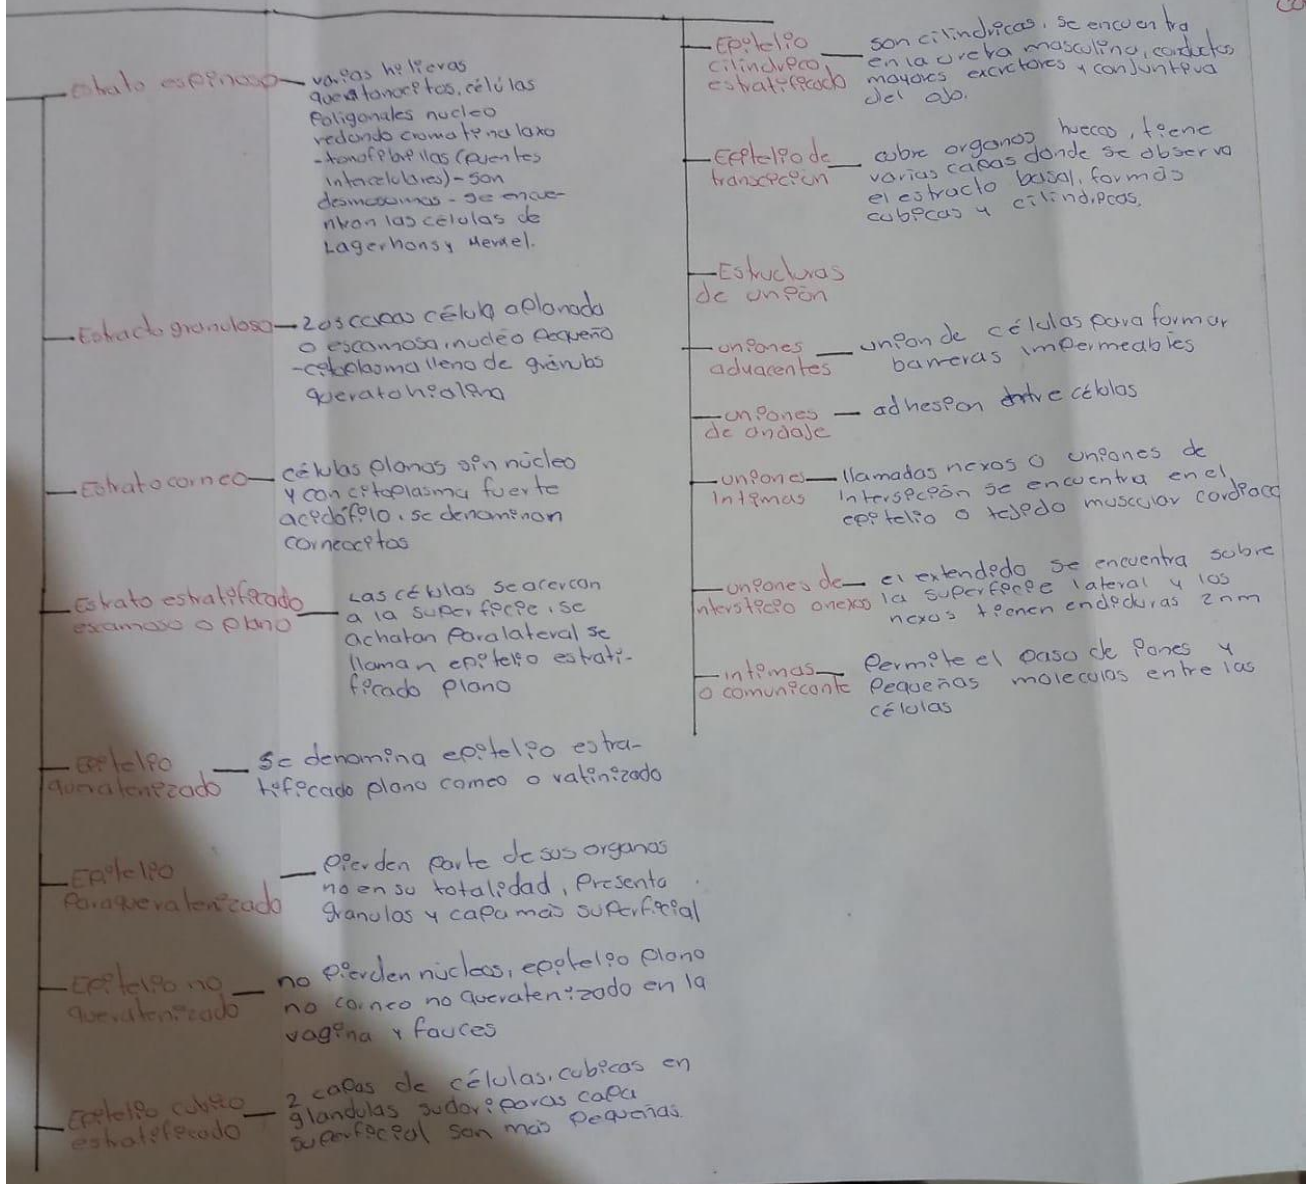 Estrato espinoso — varias hilieras
queratonocitos, células
Poligonales nucleo
redondo cromatina laxo
- tonofibrillas (puentes
intercelulares) - son
desmosomas - se encue-
ntran las células de
Lagerhans y Merkel.
Estracto granuloso — 2 o 5 capas célula aplanada
o escamosa, nucléo pequeño
- citoplasma lleno de gránulos
queratohialina
Estrato corneo — células planas sin núcleo
y con citoplasma fuerte
acidófilo. se denominan
corneocitos
Estrato estratificado
escamoso o plano — Las células se acercan
a la superficie, se
achatan para lateral se
llaman epitelio estrati-
ficado plano
Epitelio
quaratenizado — Se denomina epitelio estra-
tificado plano corneo o ratinizado
Epitelio
Paraqueratenizado — Pierden parte de sus organos
no en su totalidad, Presenta
granulas y capa más superficial
Epitelio no
queratenizado — no pierden núcleos, epitelio plano
no corneo no queratenizado en la
vagina y fauces
Epitelio cubico
estratificado — 2 capas de células. cubicas en
glandulas sudoriparas capa
superficial son más pequeñas.
Epitelio
cilindrico
estratificado — son cilindricas. se encuentra
en la uretra masculina, conductos
mayores excretores y conjuntiva
del ojo.
Epitelio de
transición — cubre organos huecos, tiene
varias capas donde se observa
el estracto basal, formas
cubicas y cilindricas.
Estructuras
de unión
uniones
aduacentes — unión de células para formar
barreras impermeables
uniones
de anclaje — adhesión entre células
uniones
íntimas — llamadas nexos o uniones de
intersición se encuentra en el
epitelio o tejido muscular cardiaco
uniones de
intersticio o nexos — el extendido se encuentra sobre
la superficie lateral y los
nexos tienen endiduras 2nm
intimas
o comunicante — Permite el paso de iones y
pequeñas moleculas entre las
células